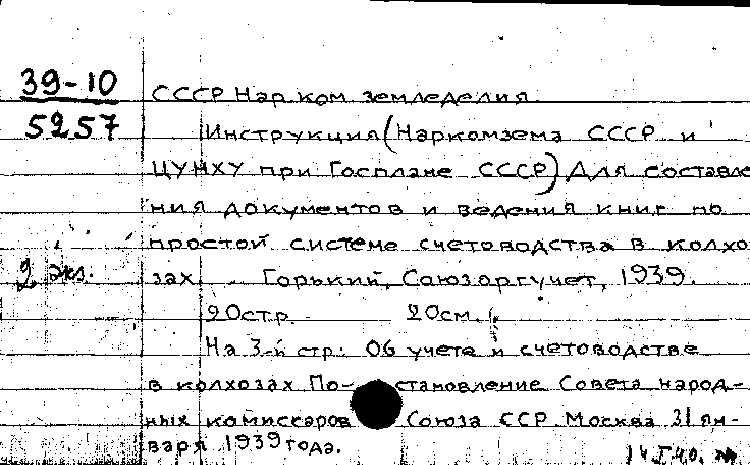 39-10
5257
СССР Нар.ком земледелия.
Инструкция (Наркомзема СССР и
ЦУНХУ при Госплане СССР) Для составле
ния документов и ведения книг по
простой системе счетоводства в колхо
зах. Горький, Союзоргучет, 1939.
2 экз.
20стр. 20см.
На 3-й стр: Об учете и счетоводстве
в колхозах По- становление Совета народ-
ных комиссаров Союза ССР. Москва 31 ян-
варя 1939 года.
14.I.40.